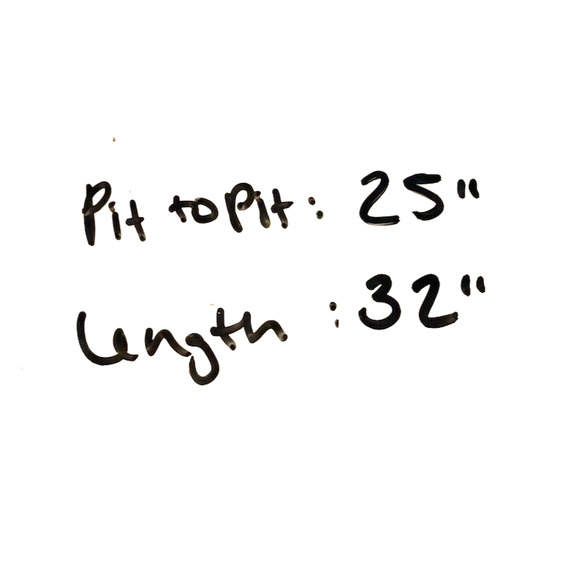 Pit to Pit: 25"
Length: 32"